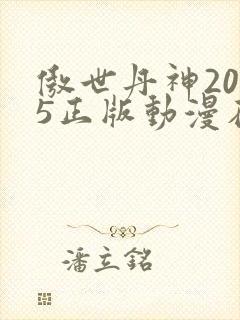 傲世丹神20
5正版動漫在
潘立銘